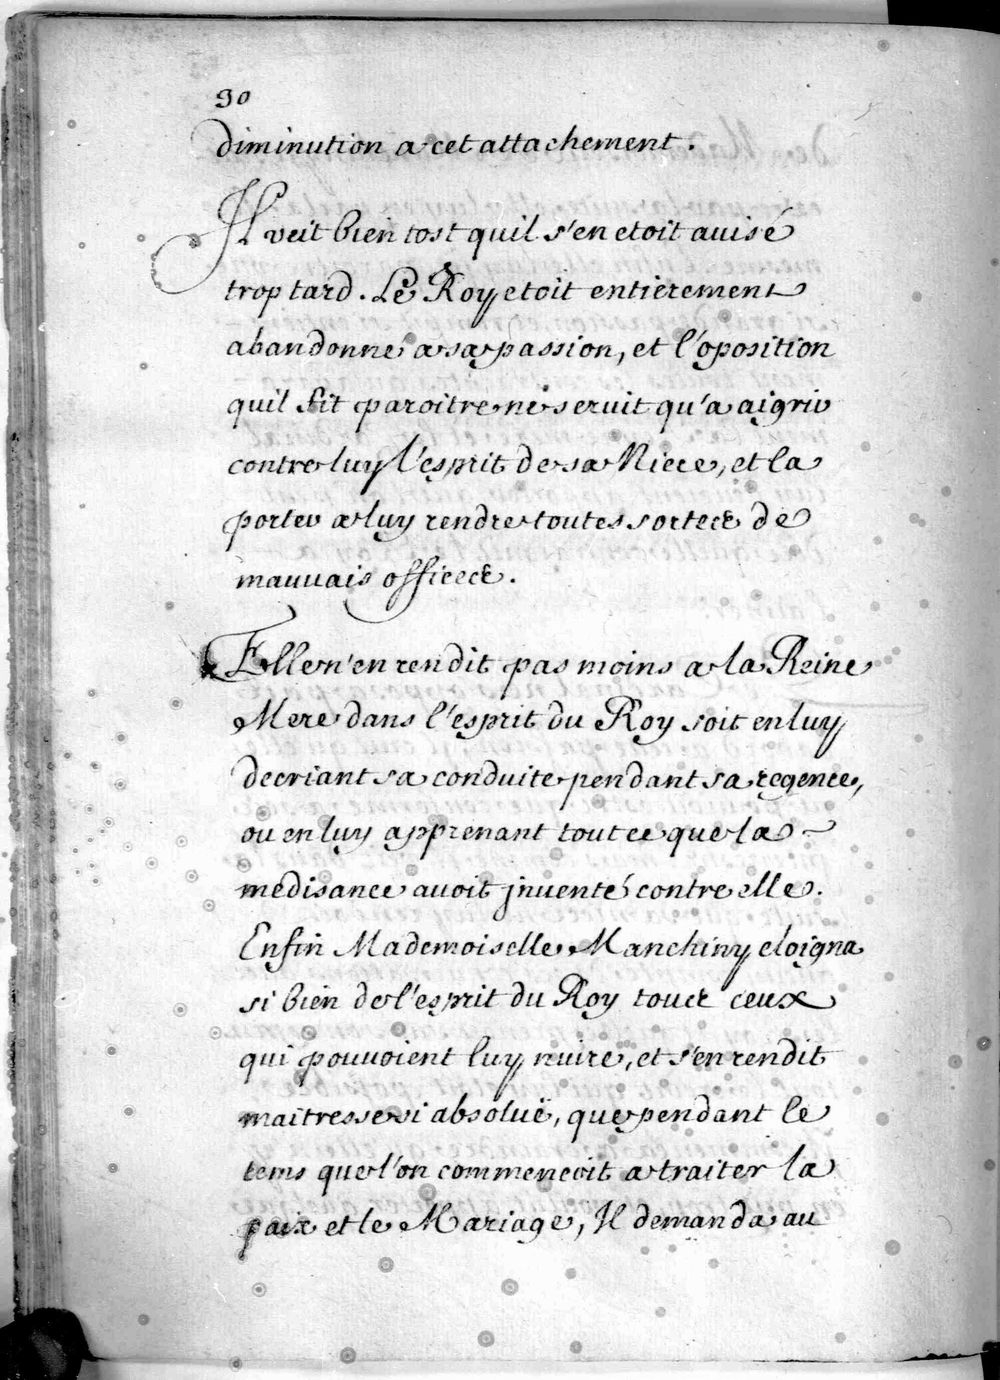 30
diminution a cet attachement.
Il veit bien tost quil s'en etoit avisé
trop tard. Le Roy etoit entierement
abandonné a sa passion, et l'oposition
quil fit paroitre ne servit qu'a aigrir
contre luy l'esprit de sa Niece, et la
porter a luy rendre toutes sortes de
mauvais offices.
Elle n'en rendit pas moins a la Reine
Mere dans l'esprit du Roy soit en luy
decriant sa conduite pendant sa regence,
ou en luy apprenant tout ce que la
medisance avoit jnventé contre elle.
Enfin Mademoiselle Manchiny eloigna
si bien de l'esprit du Roy tous ceux
qui pouvoient luy nuire, et s'en rendit
maitresse si absoluë, que pendant le
tems que l'on commencoit a traiter la
paix et le Mariage, Il demanda au